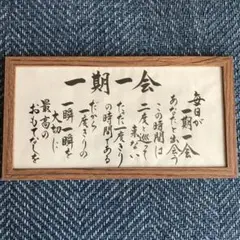 一期一会
毎日が
一期一会
あなたと出会う
この時間は
二度と巡って
来ない
ただ一度きり
の時間である
だから
一度きりの
一瞬一瞬を
大切に
最高の
おもてなしを